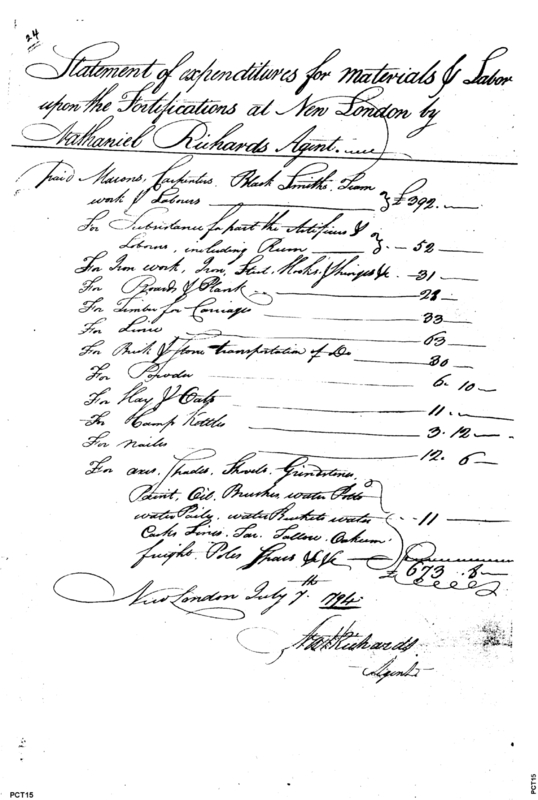 24
Statement of expenditures for materials & Labor
upon the Fortifications at New London by
Nathaniel Richards Agent.
Paid Masons, Carpenters. Black Smiths. Team
work & Labours } £392.
For Subsistance for part the Artificers &
Labours, including Rum } 52
For Iron work, Iron, Steel, Hooks, & hinges &c. 31
For Boards & Plank 28
For Timber for Carriages 33
For Lime 63
For Brick & Stone transportation of Do 30
For Powder 6. 10
For Hay & Oats 11.
For Camp Kettles 3. 12
For nailes 12. 6
For axes, Spades, Shovels. Grindstones,
Paint, Oil. Brushes water Potts
water Pails. water Buckets water
Casks Lines. Tar. Tallow. Oakum } 11
freight. Poles Spars &c &c
£ 673. 8
New London July 7th 1794
Nat Richards
Agent
PCT15
PCT15